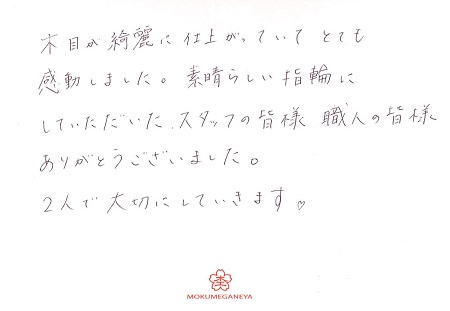 木目が綺麗に仕上がっていて とても
感動しました。素晴らしい指輪に
していただいた、スタッフの皆様 職人の皆様
ありがとうございました。
2人で大切にしていきます♡
MOKUMEGANEYA